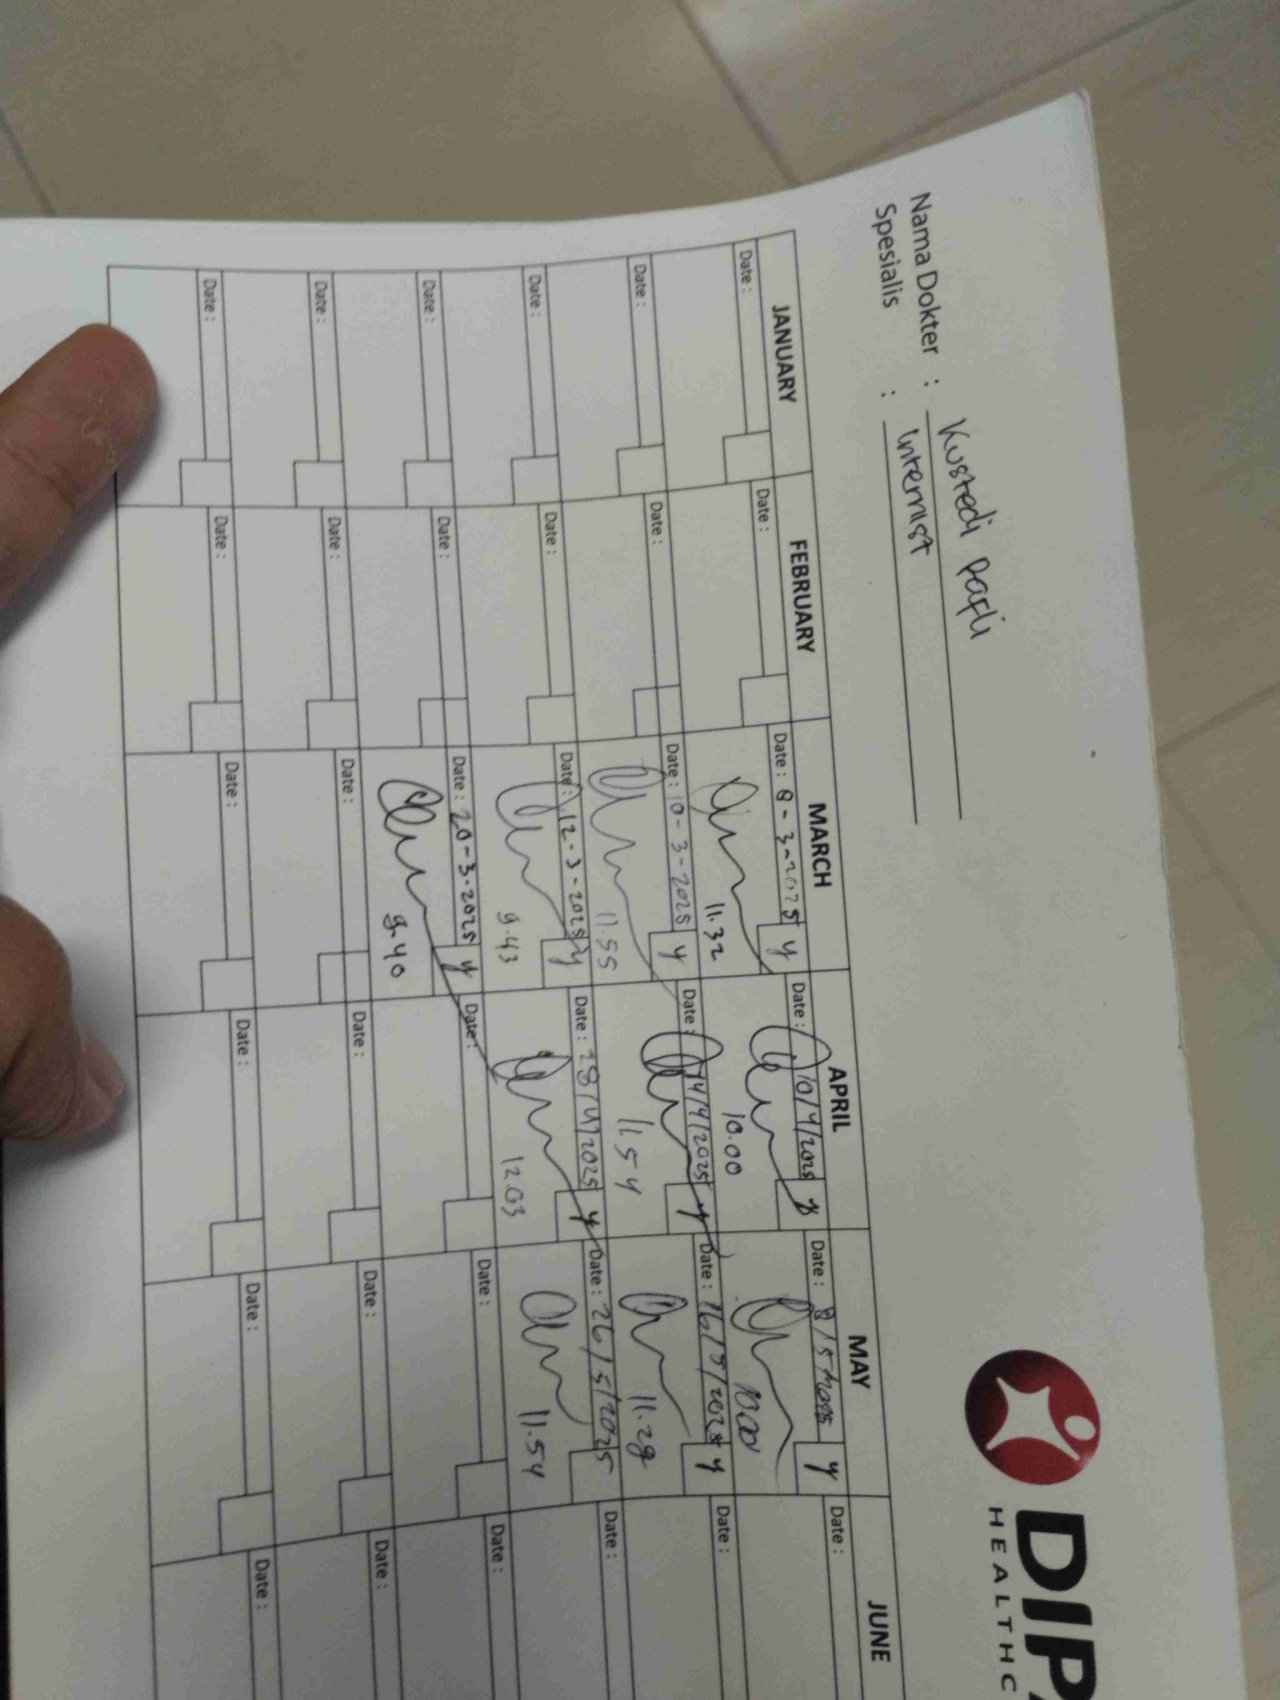 DIP
HEALTHC
Nama Dokter : Kustedi Pafli
Spesialis : Internist
JANUARY FEBRUARY MARCH APRIL MAY JUNE
Date : Date : Date : 8-3-2025 y Date : 10/4/2025 y Date : 8/5/2025 y Date :
11.32 10.00 10.00
Date : Date : Date : 10-3-2025 y Date : 14/4/2025 y Date : 16/5/2025 y Date :
11.55 11.54 11.29
Date : Date : Date : 12-3-2025 y Date : 28/4/2025 y Date : 26/5/2025 Date :
9.43 12.03 11.54
Date : Date : Date : 20-3-2025 y Date : Date : Date :
9.40
Date : Date : Date : Date : Date : Date :
Date : Date : Date : Date : Date : Date :